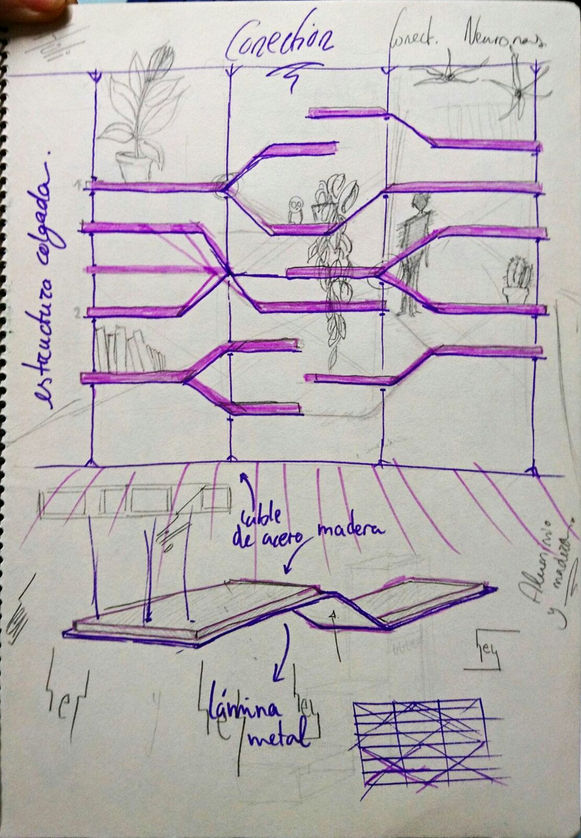 Conection
Conect. Neuronas
estructura colgada.
1
2
cable
de acero
madera
Aluminio
y madera.
lámina
metal